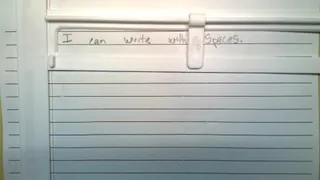 I can write with spaces.